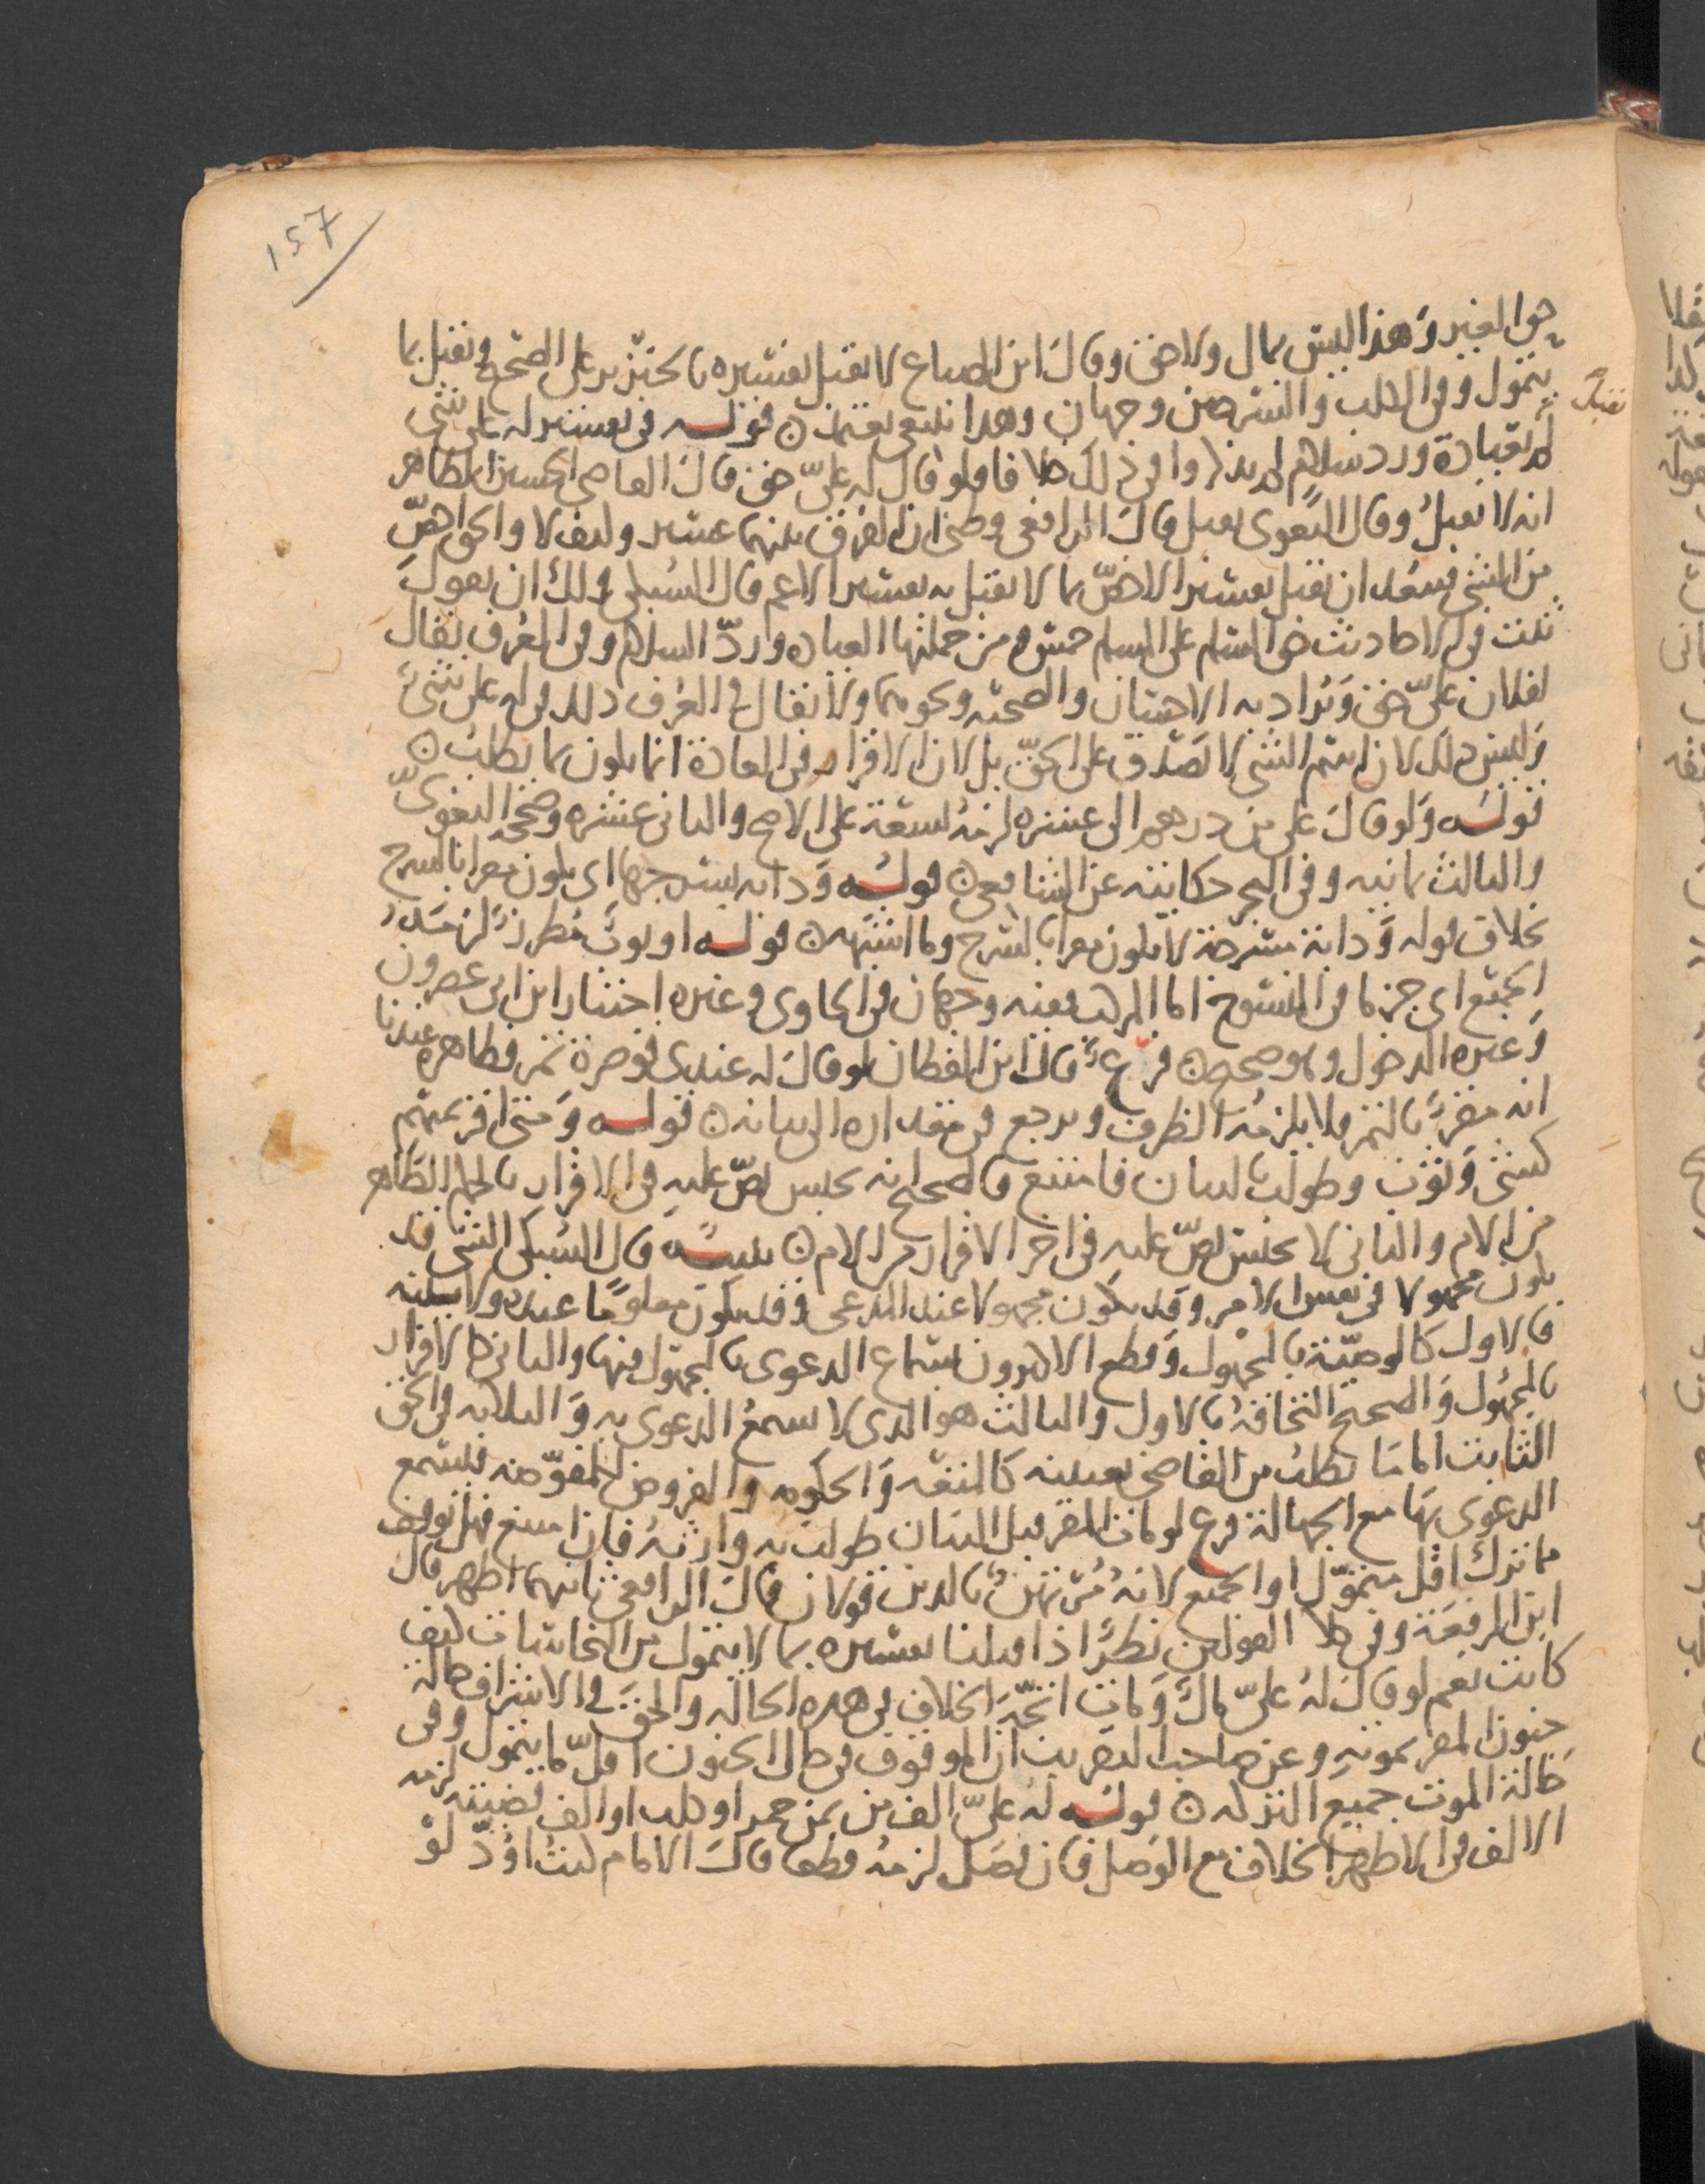 157
حق الغير وهذا ليس بمال ولا حق وقال ابن الصباغ لا يقبل تفسيره بالخنزير على الصحيح ويقبل بما
يتمول وفي الكلب والسرجين وجهان وهذا ينبغي يقبلان قوله في تفسير له علي شي
يقبل
لا بعيادة ورد سلام لم يذكروا في ذلك خلافا فلو قال له عليّ حق قال القاضي الحسين الظاهر
انه لا يقبل وقال البغوي يقبل قال الرافعي وظني ان الفرق بينهما عسير وكيف لا والحق اخصّ
من الشي فيبعد ان يقبل تفسير الاخصّ بما لا يقبل به تفسير الاعم قال السبكي ولك ان تقول
ثبت في الاحاديث حق المسلم على المسلم خمس ومن جملتها العيادة وردّ السلام وفي العرف يقال
لفلان عليّ حق ويُراد به الاحسان والصحبة ونحوهما ولا يقال في العُرف ذلك في له علي شيء
وليس ذلك لان اسم الشي لا يصدق على الحقّ بل لان الاقرار في العادة انما يكون بما يطلب
قوله ولو قال علي من درهم الى عشرة لزمه تسعة على الاصح والثاني عشرة وصححه البغويّ
والثالث ثمانية وفي البحر حكايته عن الشافعي قوله ودابة بسرجها اي يكون مقرا بالسرج
بخلاف قوله ودابة مسرجة لا يكون مقرا بالسرج وما اشبهه قوله او ثوب مطرز لزمه
الجميع اي جزما في المنسوج اما المركب ففيه وجهان في الحاوي وغيره اختار ابن ابي عصرون
وغيره الدخول وهو صحيح فرع قال ابن القطان لو قال له عندي قوصرة تمر فظاهره عندنا
انه مقر بالتمر ولا يلزمه الظرف ويرجع في مقداره الى بيانه قوله ومتى اقر بمبهم
كشي وثوب وطولب بالبيان فامتنع فالصحيح انه يحبس نصّ عليه في الاقرار بالحكم الظاهر
من الام والثاني لا يحبس نصّ عليه في اخر الاقرار من الام تنبيه قال السبكي الشي قد
يكون مجهولا في نفس الامر وقد يكون مجهولا عند المدعي وقد يكون معلوما عنده ولا يبينه
فالاول كالوصيّة بالمجهول وقطع الاكثرون بسماع الدعوى بالمجهول فيها والثاني كالاقرار
بالمجهول والصحيح التحاقه بالاول والثالث هو الذي لا تسمع الدعوى به والثلاثة في الحق
الثابت اما ما يطلب من القاضي تعيينه كالمتعة والحكومة والفروض للمفوّضة فيسمع
الدعوى بها مع الجهالة فرع لو مات المقر قبل البيان طولب به وارثه فان امتنع فهل يوقف
مما ترك اقل متموّل او الجميع لانه مُرتهن بالدين قولان قال الرافعي ثانيهما اظهر قال
ابن الرفعة وفي كلا القولين نظر اذا قبلنا تفسيره بما لا يتمول من النجاسات كيف
كانت نعم لو قال له عليّ مال ومات اتجه الخلاف في هذه الحالة والحق في الاشراف حالة
جنون المقر بموته وعن صاحب التقريب ان الموقوف في حال الجنون اقلّ ما يتمول وفي
حالة الموت جميع التركة قوله له عليّ الف من ثمن خمر او كلب او الف قضيته لزمه
الالف في الاظهر الخلاف مع الوصل فان فصل لزمه قطعا قال الامام كنت اودّ لو